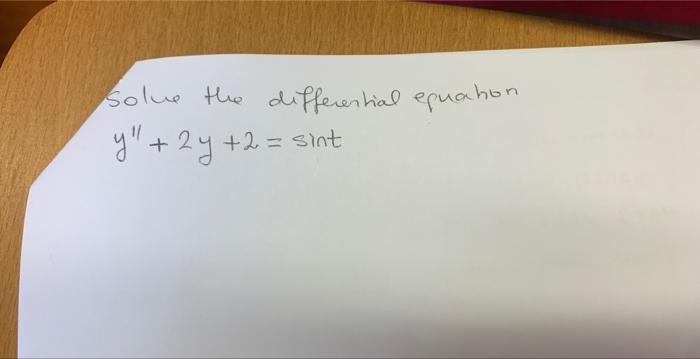 Solve the differential equation
y" + 2y + 2 = sint